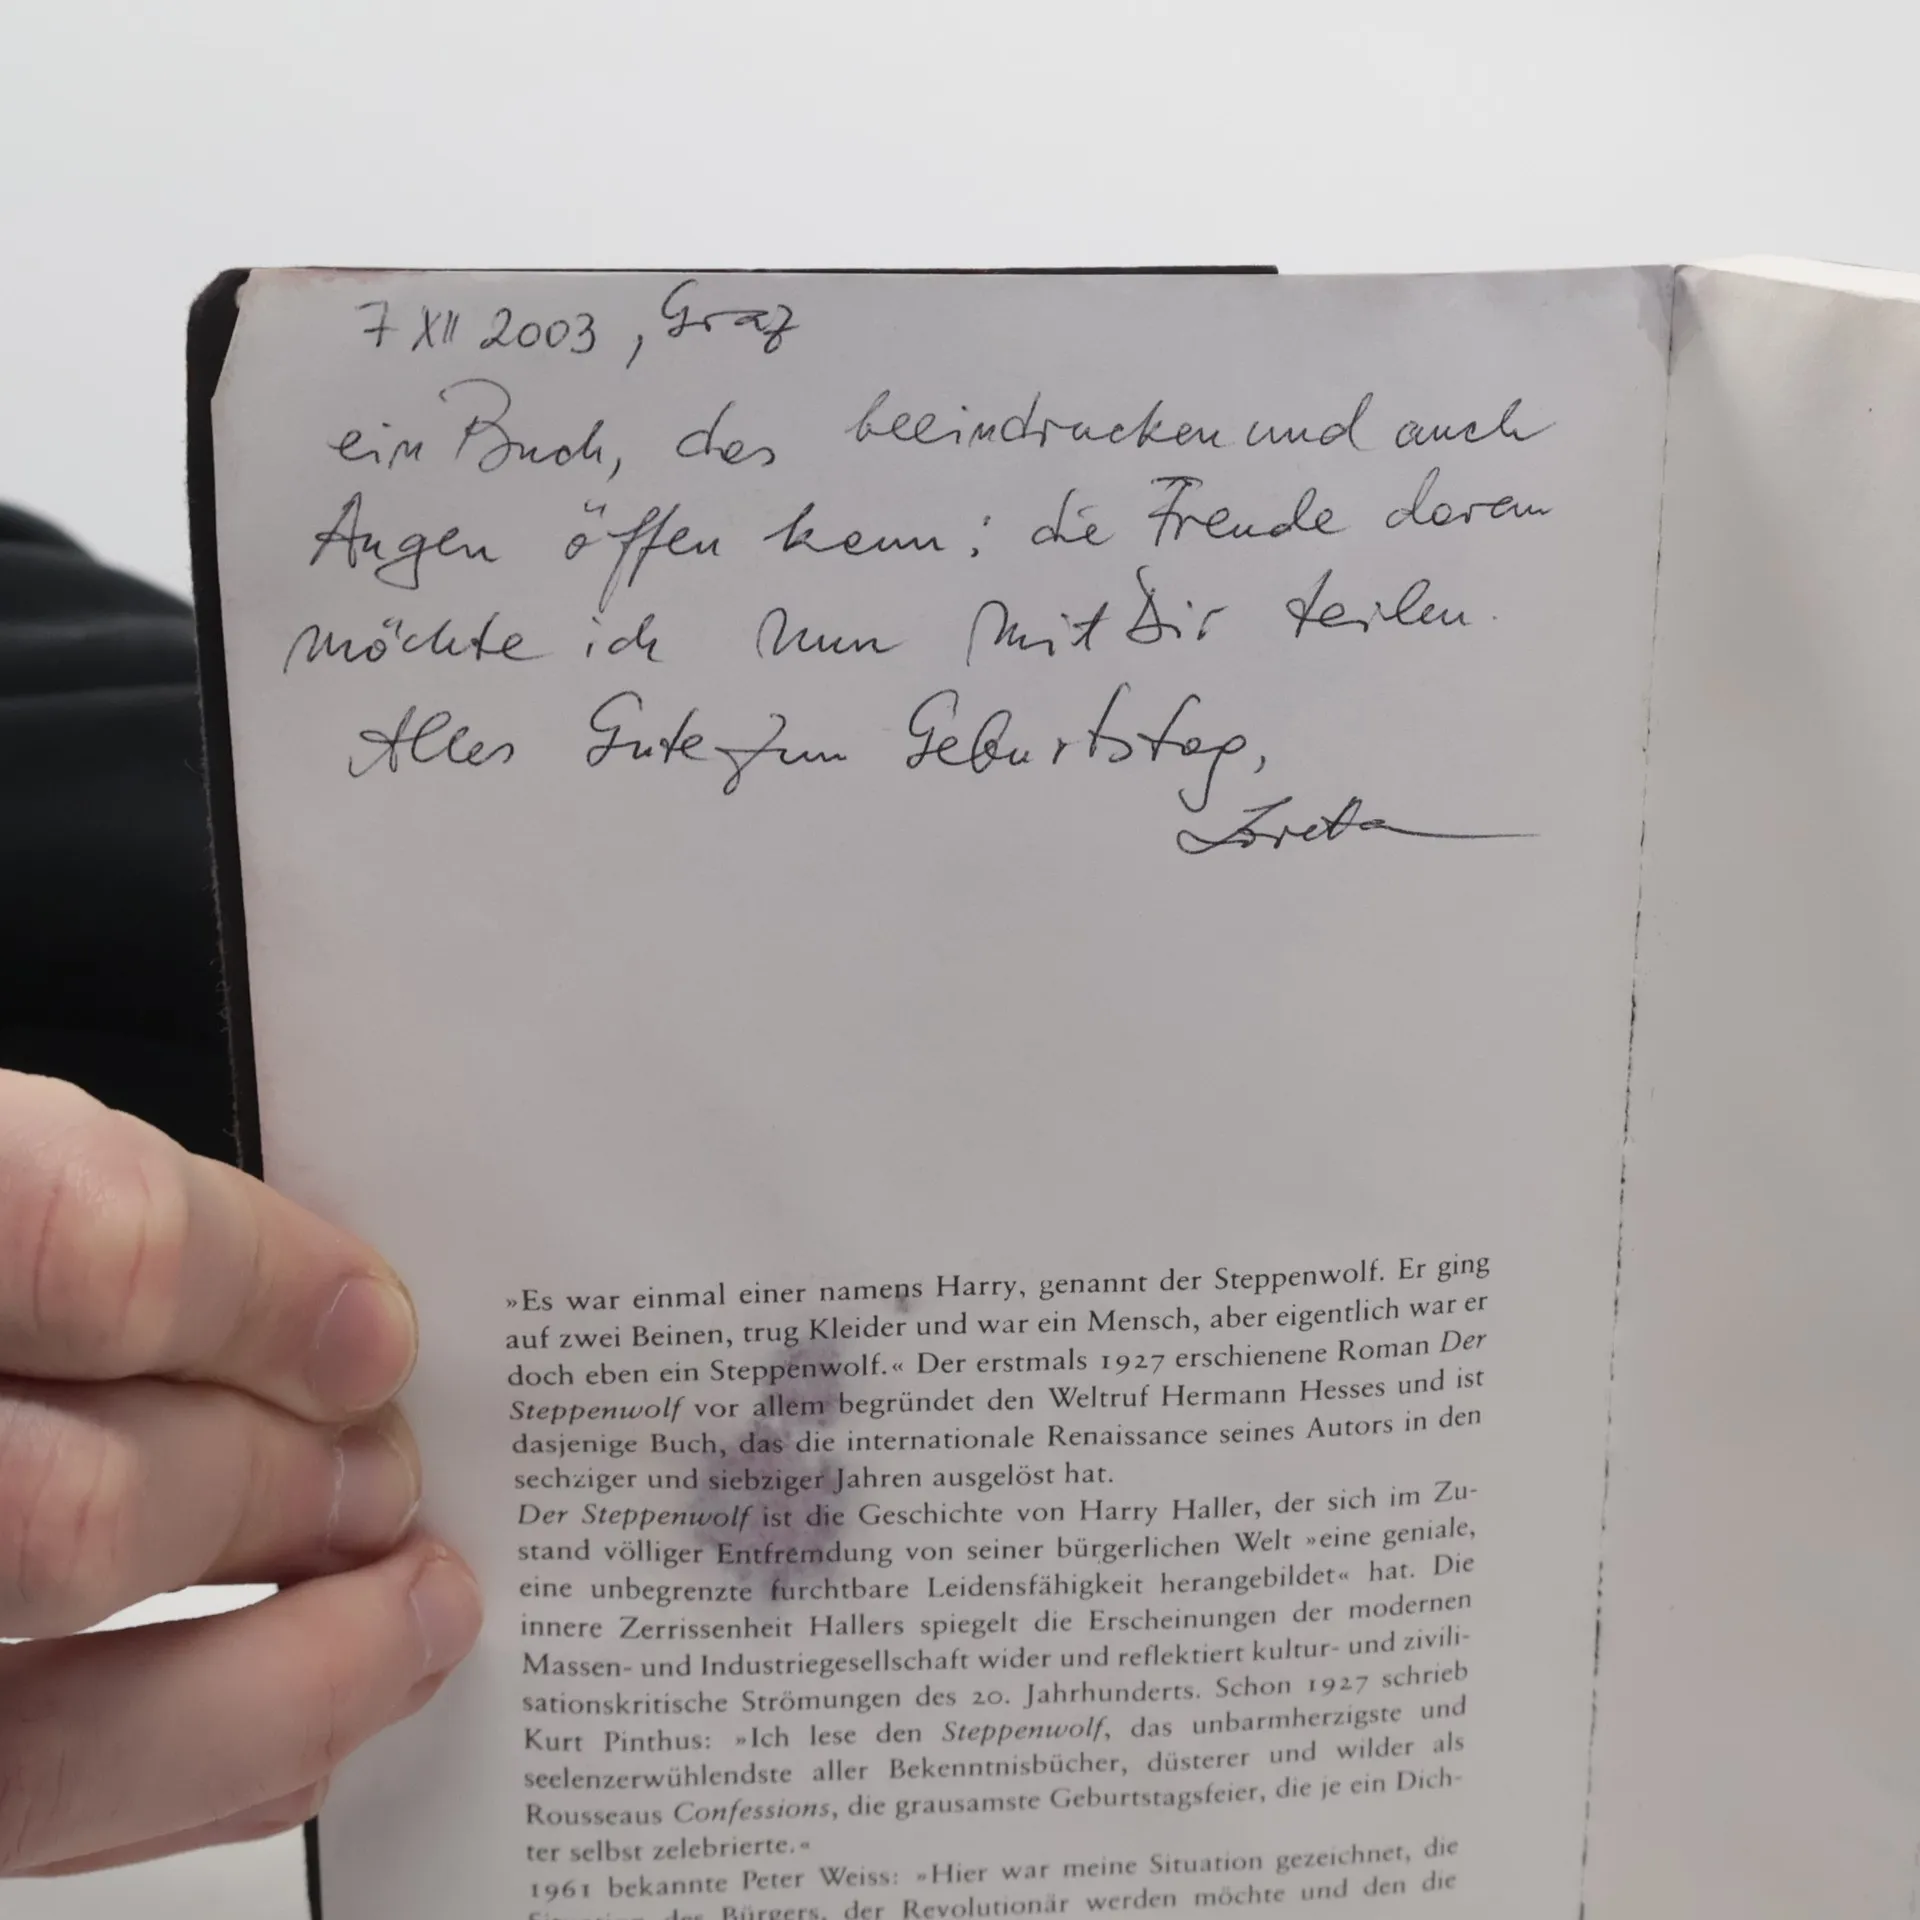 7 XII 2003, Graz
ein Buch, das beeindrucken und auch
Augen öffen kann: die Freude daran
möchte ich nun mit Dir teilen.
Alles Gute zum Geburtstag,
Loreta
»Es war einmal einer namens Harry, genannt der Steppenwolf. Er ging
auf zwei Beinen, trug Kleider und war ein Mensch, aber eigentlich war er
doch eben ein Steppenwolf.« Der erstmals 1927 erschienene Roman Der
Steppenwolf vor allem begründet den Weltruf Hermann Hesses und ist
dasjenige Buch, das die internationale Renaissance seines Autors in den
sechziger und siebziger Jahren ausgelöst hat.
Der Steppenwolf ist die Geschichte von Harry Haller, der sich im Zu-
stand völliger Entfremdung von seiner bürgerlichen Welt »eine geniale,
eine unbegrenzte furchtbare Leidensfähigkeit herangebildet« hat. Die
innere Zerrissenheit Hallers spiegelt die Erscheinungen der modernen
Massen- und Industriegesellschaft wider und reflektiert kultur- und zivili-
sationskritische Strömungen des 20. Jahrhunderts. Schon 1927 schrieb
Kurt Pinthus: »Ich lese den Steppenwolf, das unbarmherzigste und
seelenzerwühlendste aller Bekenntnisbücher, düsterer und wilder als
Rousseaus Confessions, die grausamste Geburtstagsfeier, die je ein Dich-
ter selbst zelebrierte.«
1961 bekannte Peter Weiss: »Hier war meine Situation gezeichnet, die
Situation des Bürgers, der Revolutionär werden möchte und den die